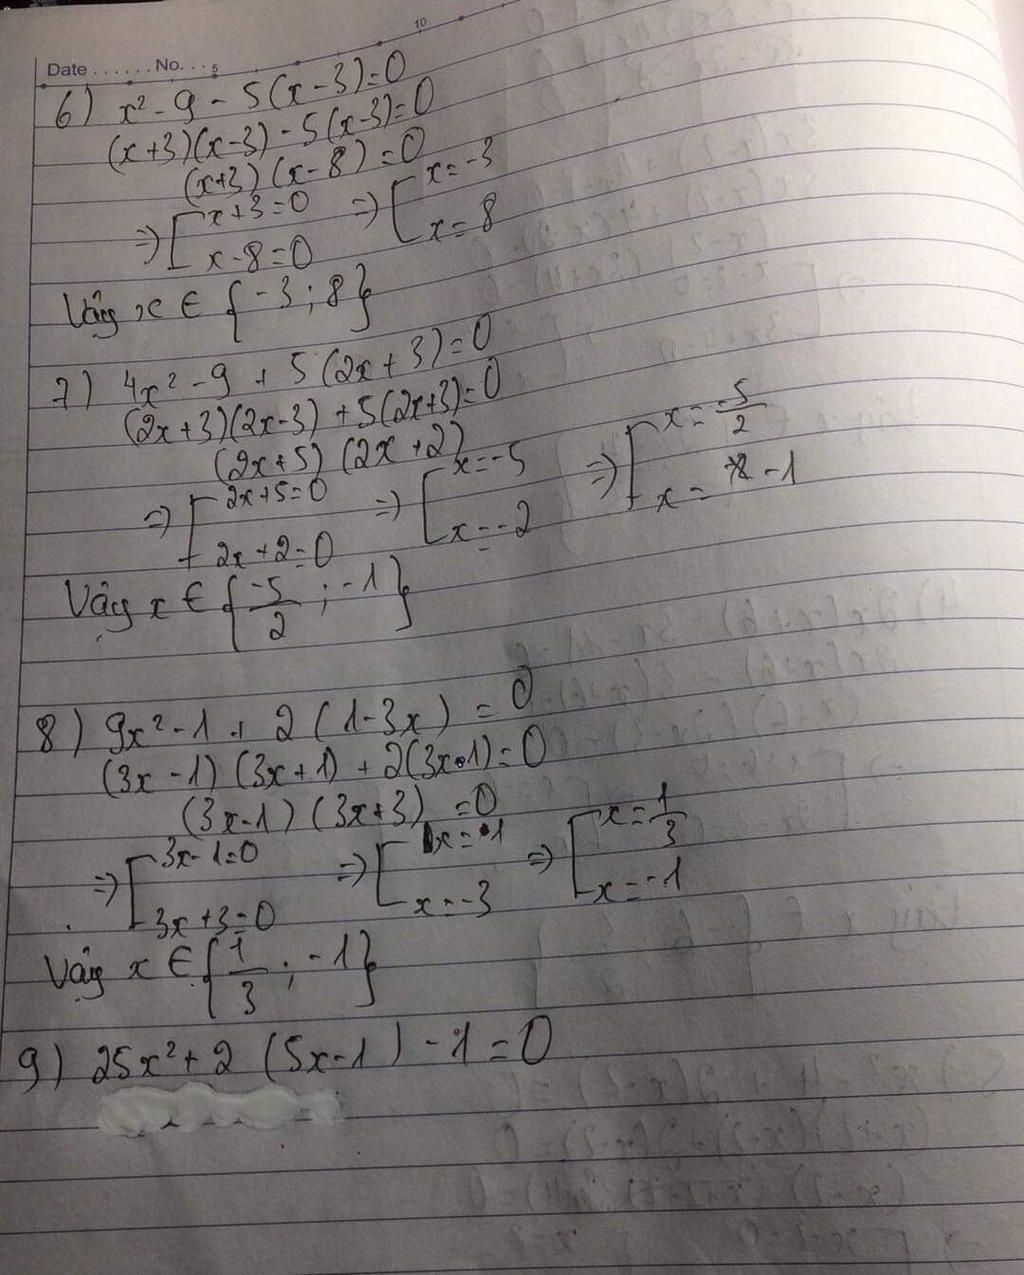 Date ...... No. ..
5
10
6) x² - 9 - 5(x - 3) = 0
(x+3)(x-3) - 5(x-3) = 0
(x+3)(x-8) = 0
⇒ [ x+3=0 ⇒ [ x=-3
x-8=0 x=8
Vậy x ∈ {-3 ; 8}
7) 4x² - 9 + 5(2x + 3) = 0
(2x+3)(2x-3) + 5(2x+3) = 0
(2x+5) (2x+2)
⇒ [ 2x+5=0 ⇒ [ x=-5 ⇒ [ x = -5/2
2x+2=0 x=-2 x = -1
Vậy x ∈ {-5/2 ; -1}
8) 9x² - 1 + 2(1-3x) = 0
(3x-1)(3x+1) + 2(3x-1) = 0
(3x-1)(3x+3) = 0
⇒ [ 3x-1=0 ⇒ [ x=1 ⇒ [ x=1/3
3x+3=0 x=-3 x=-1
Vậy x ∈ {1/3 ; -1}
9) 25x² + 2(5x-1) - 1 = 0